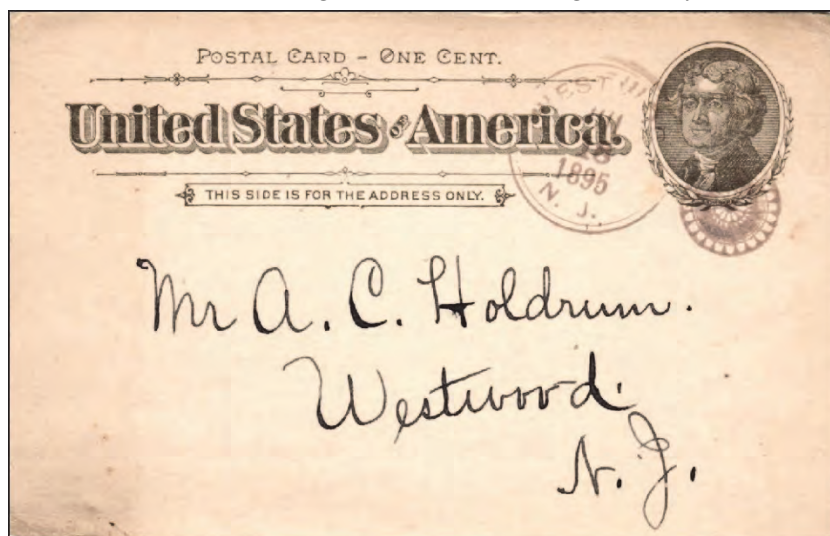 POSTAL CARD - ONE CENT.
United States of America.
THIS SIDE IS FOR THE ADDRESS ONLY.
1895
N. J.
Mr A. C. Holdrum.
Westwood.
N. J.